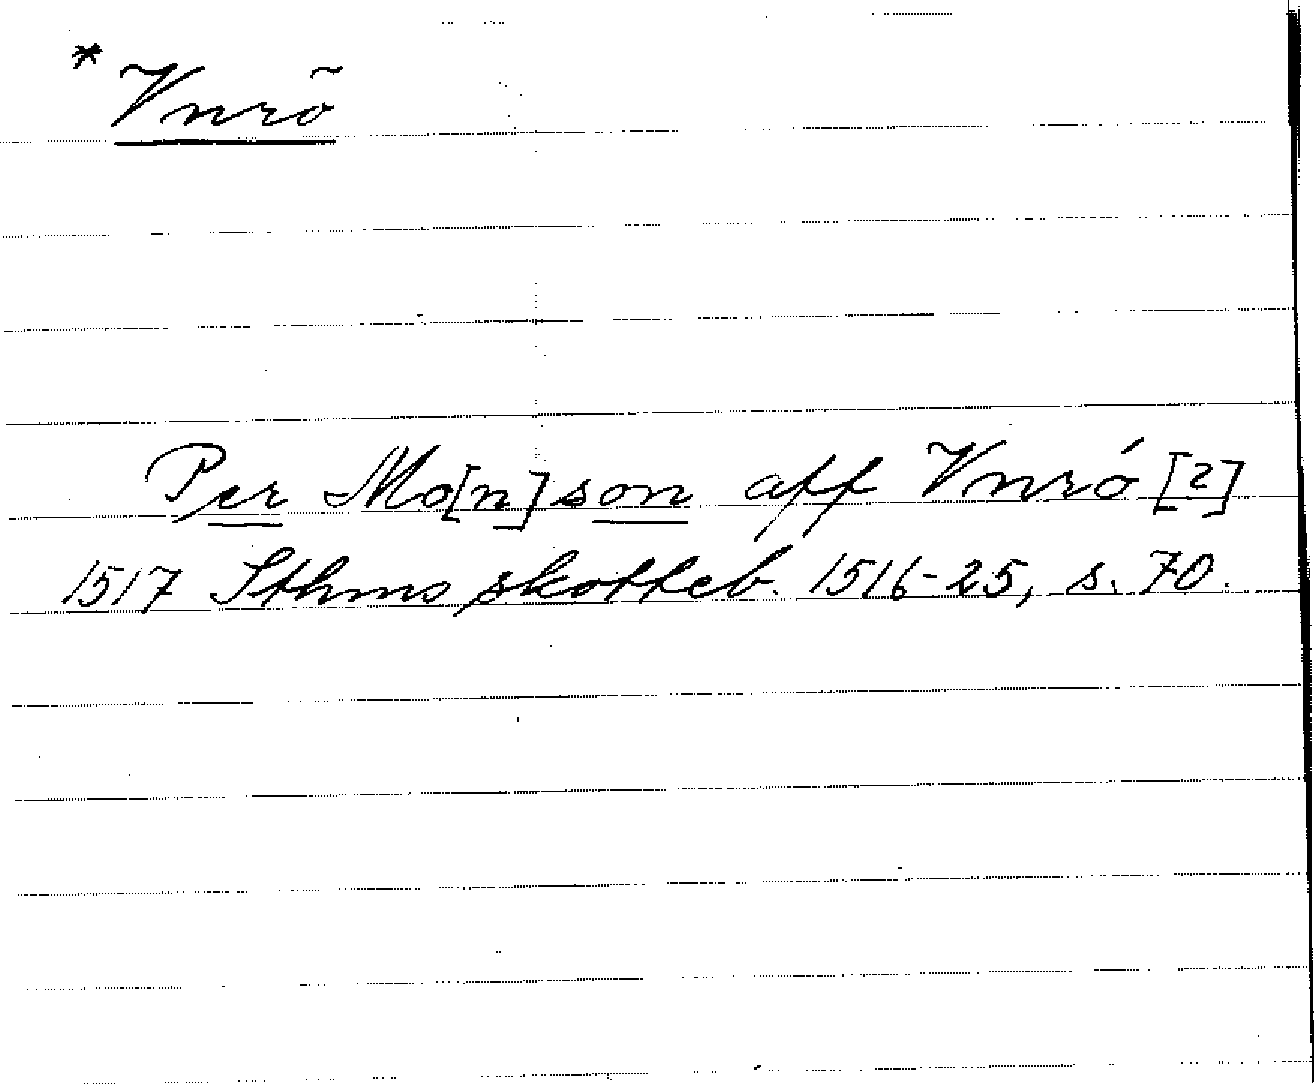 * Vnrõ
Per Mo[n]son aff Vnró [?]
1517 Sthms skotteb. 1516-25, s. 70.